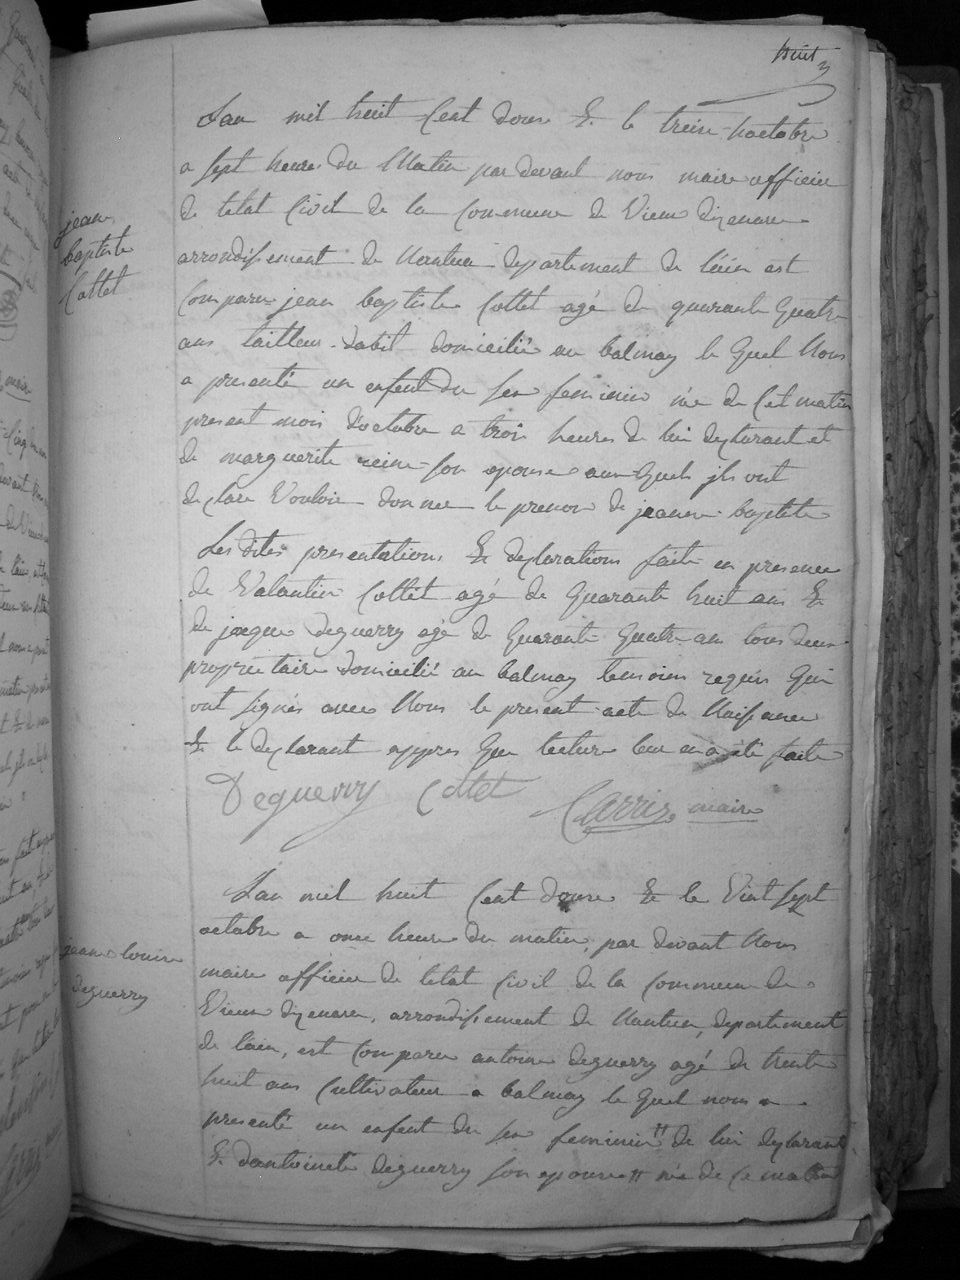 huit
L'an mil huit Cent douse & le treise hoctobre
a sept heures du Matin par devant nous maire officier
de letat Civil de la Commune de Vieu dizenave
arrondissement de Nantua departement de l'ain est
Comparu jean baptiste Collet agé de quarante quatre
ans tailleur dabit domicilié au balmay le quel Nous
a presenté un enfent du sex feminin né de Cet matin
present mois d'octobre a trois heures de lui deylarant et
de marguerite reine son epouse aux quels jls ont
declare Vouloir donner le prenom de jeanne baptiste
Les dites presentations & deylarations faite en presence
de Valantin Collet agé de quarante huit ans &
de jacque deguerry agé de quarante quatre ans tous deux
propriétaire domicilié au balmay temoins requis qui
ont signés avec Nous le present acte de Naissance
& le deylarant appres que lecture leur en a été faite
Deguerry Collet Carrier maire
jean
baptiste
Collet
L'an mil huit Cent douse & le Vint sept
octobre a onse heure du matin, par devant Nous
maire officier de letat Civil de la Commune de
Vieu dizenave, arrondissement de Nantua, departement
de lain, est Comparu antoine deguerry agé de trente
huit ans Cultivateur a balmay le quel nous a
presenté un enfent du sex feminin de lui deylarant
& dantoinete deguerry son epouse né de ce matin
jeane louise
deguerry